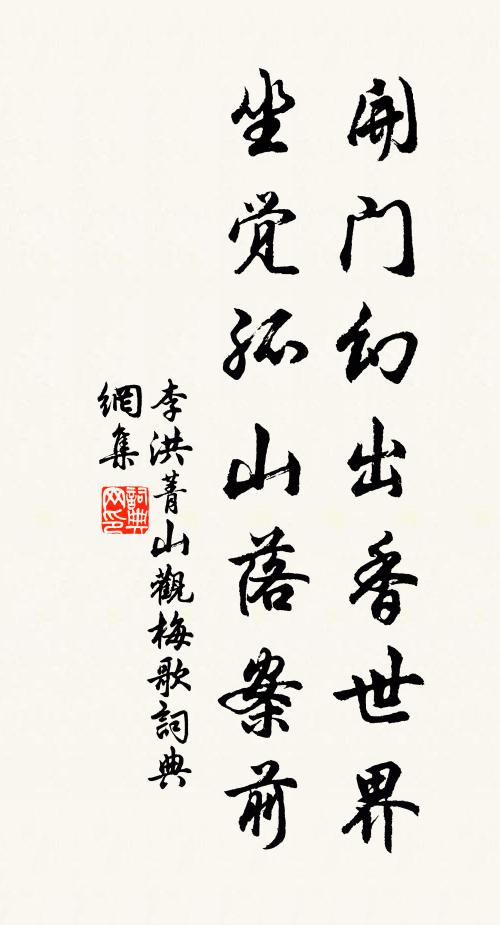 開门幻出香世界
坐觉孤山落案前
李洪菁山觀梅歌詞典
網集
詞典
网印